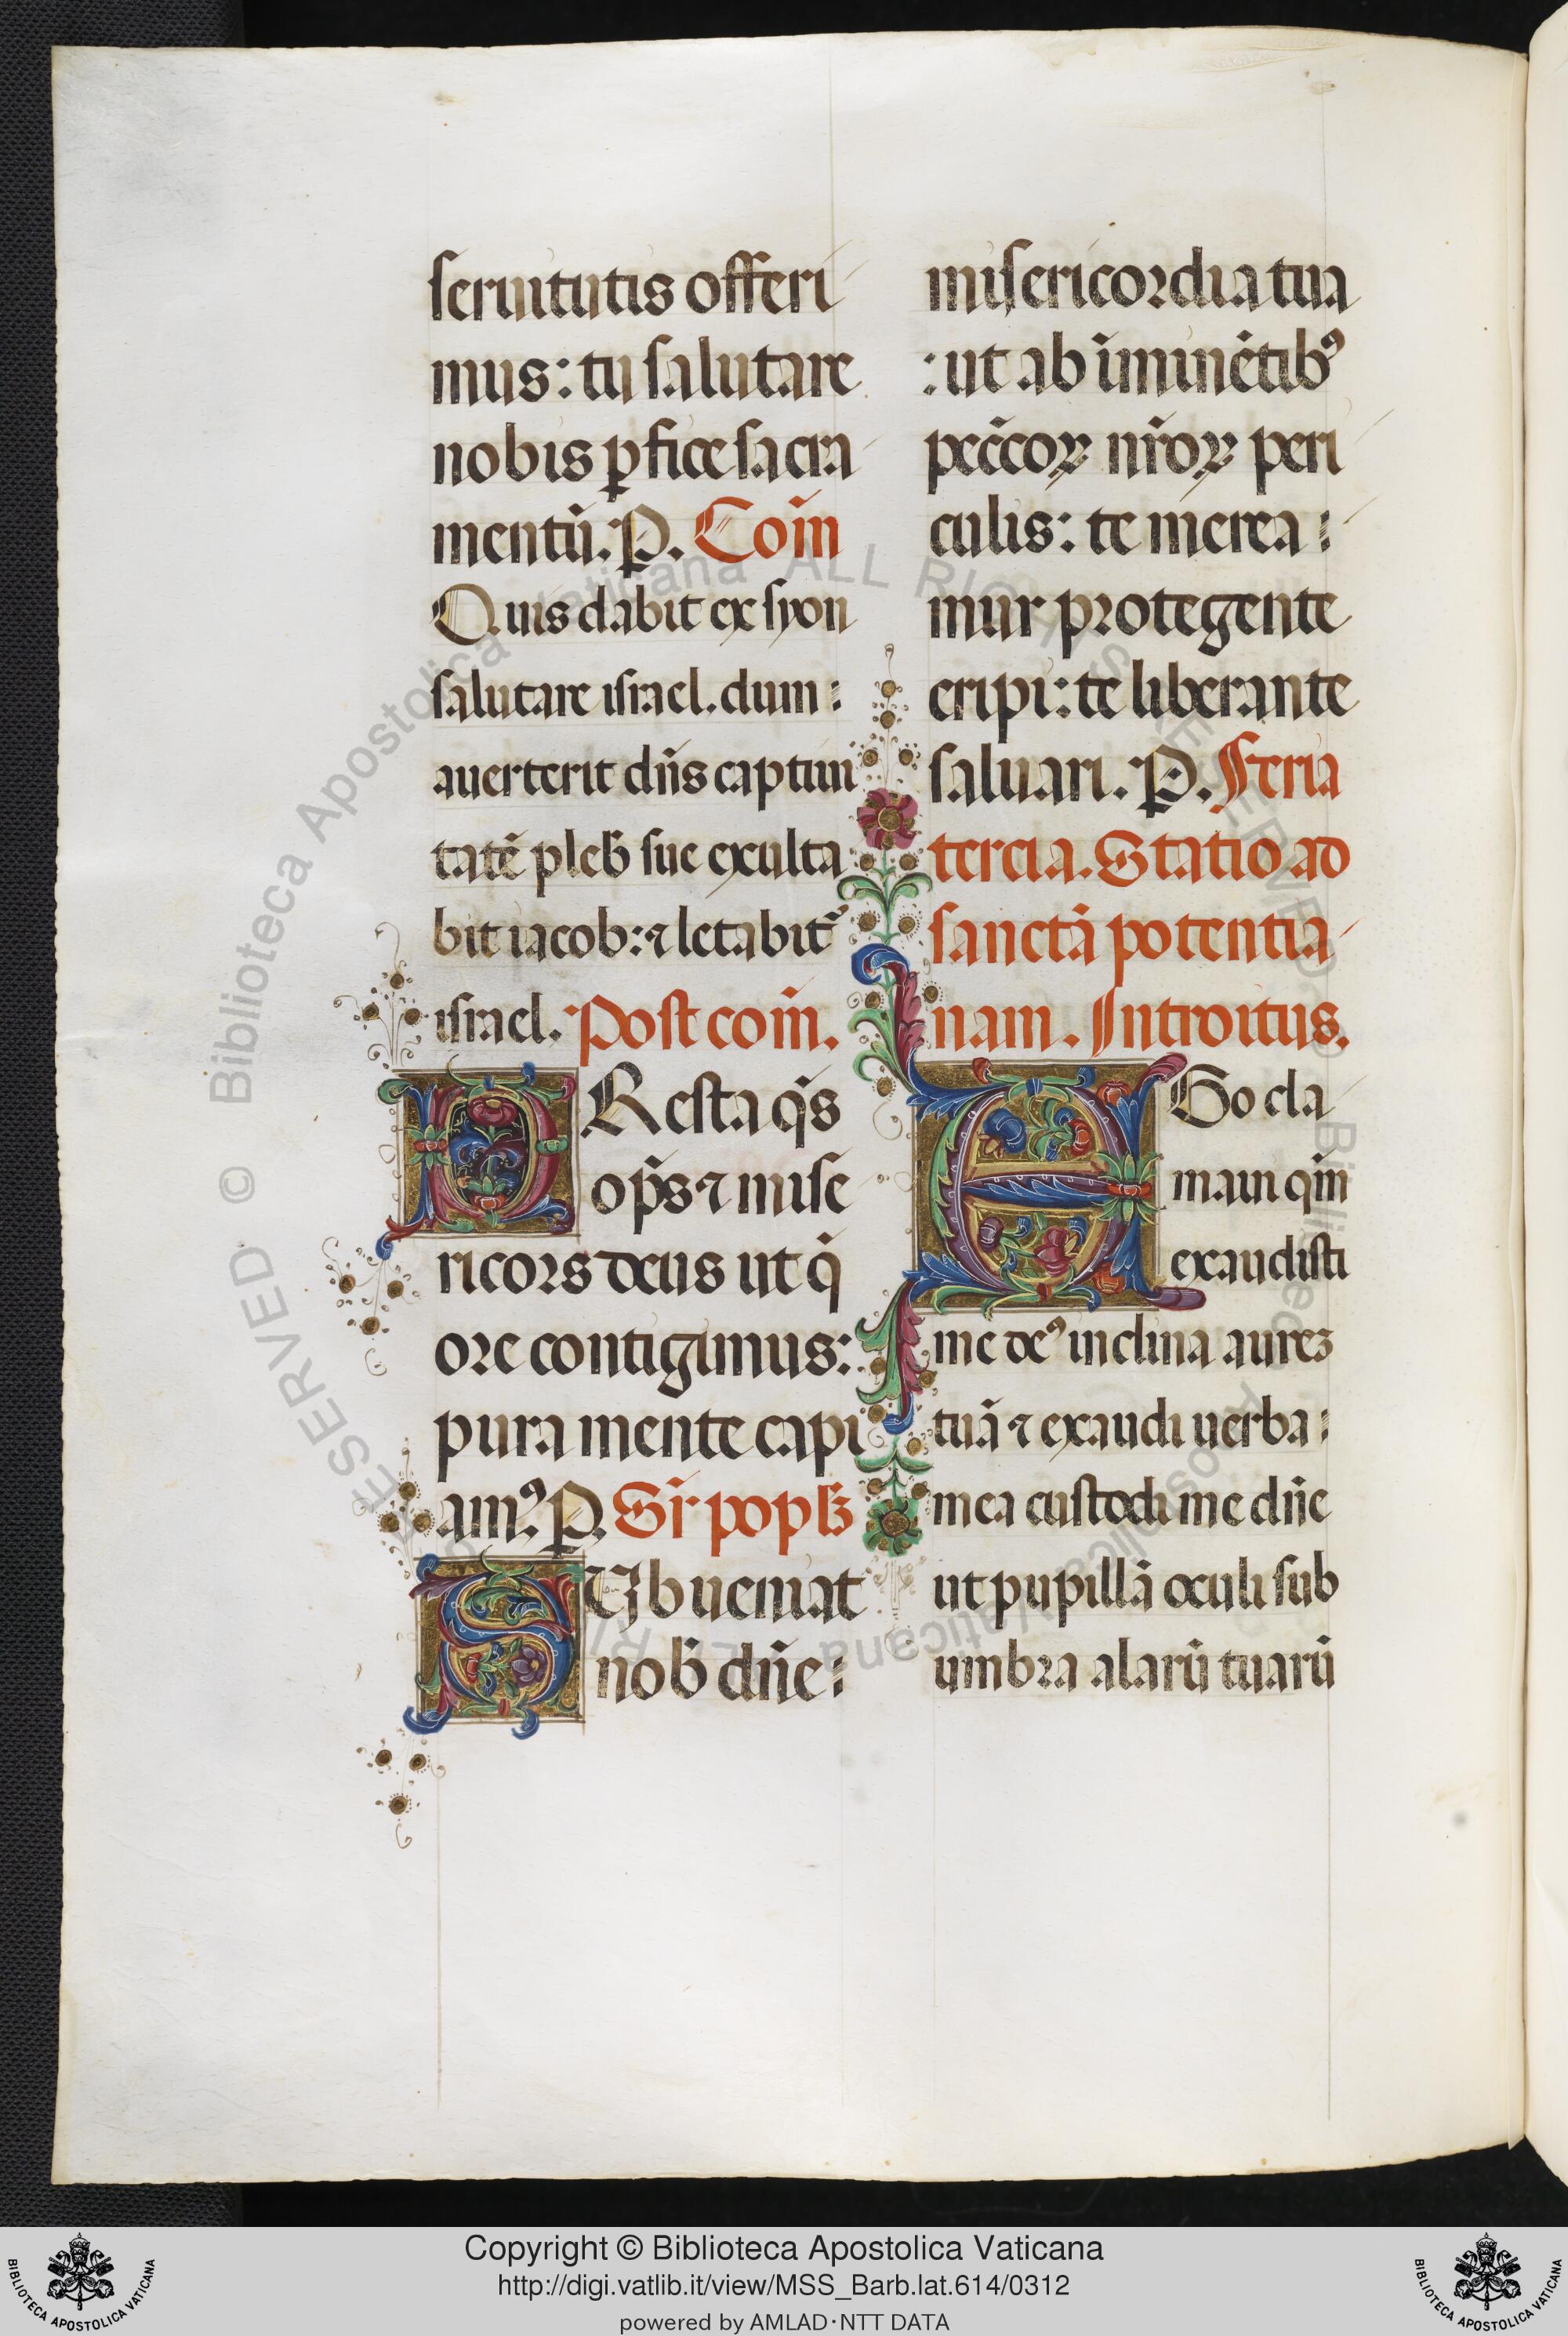 seruitutis offeri
mus: tu salutare
nobis ꝑfice sacra
mentū. P. Com̄
Quis dabit ex syon
salutare israel. dum
auerterit dn̄s captiui
tatē pleb̄ sue exulta
bit iacob: ⁊ letabit᷑
israel. Post com̄.
PResta q̄s
op̄s ⁊ mise
ricors deus ut q̄
ore contigimus:
pura mente capi
amꝰ. P. Sr̄ popl̄s
SUbueniat
nob̄ dn̄e
misericordia tua
: ut ab īminētibꝰ
pec̄coꝝ nr̄oꝝ peri
culis: te merea
mur protegente
eripi: te liberante
saluari. P. Feria
tercia. Statio ad
sanctā potentia
nam. Introitus.
EGo cla
maui qm̄
exaudisti
me deꝰ inclina aureꝫ
tuā ⁊ exaudi uerba
mea custodi me dn̄e
ut pupillā oculi sub
umbra alarū tuarū
Copyright © Biblioteca Apostolica Vaticana
http://digi.vatlib.it/view/MSS_Barb.lat.614/0312
powered by AMLAD·NTT DATA
BIBLIOTECA APOSTOLICA VATICANA
BIBLIOTECA APOSTOLICA VATICANA